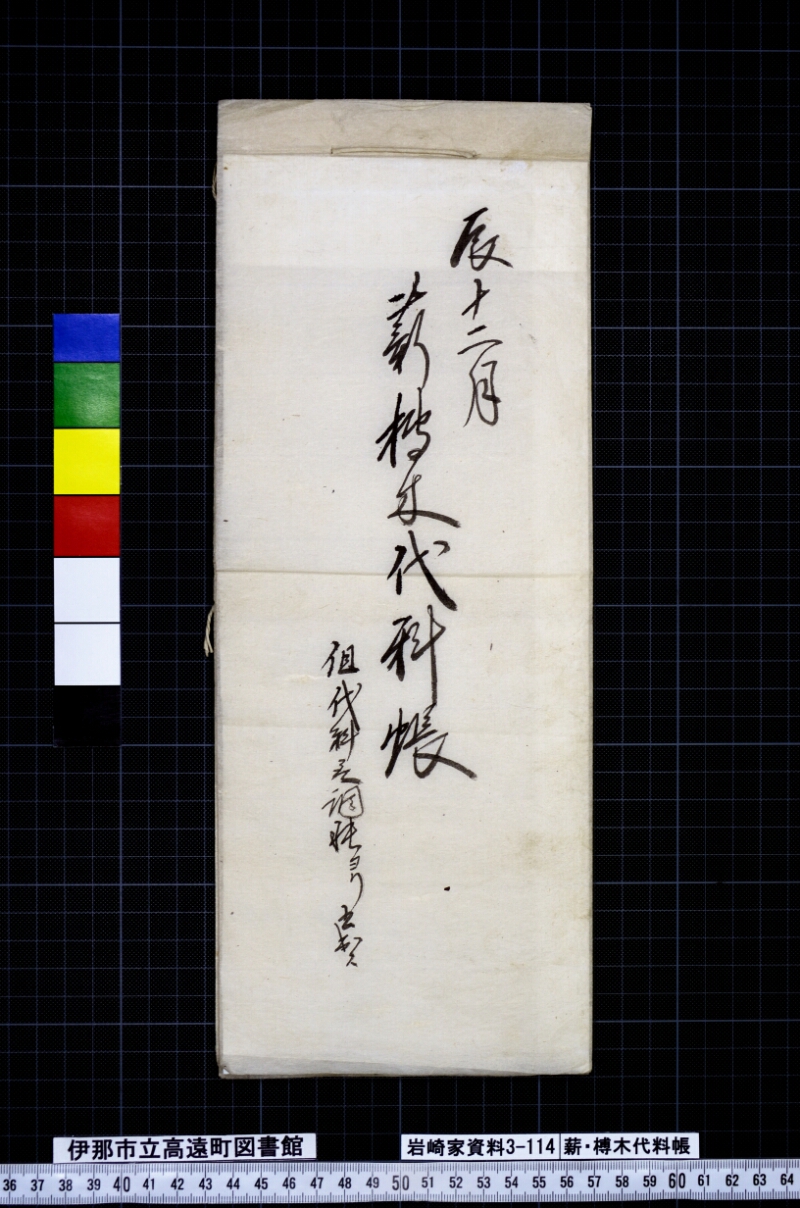 辰十二月
薪榑木代料帳
但代料之調帳ヨリ
伊那市立高遠町図書館
岩崎家資料3-114 薪・榑木代料帳
36 37 38 39 40 41 42 43 44 45 46 47 48 49 50 51 52 53 54 55 56 57 58 59 60 61 62 63 64